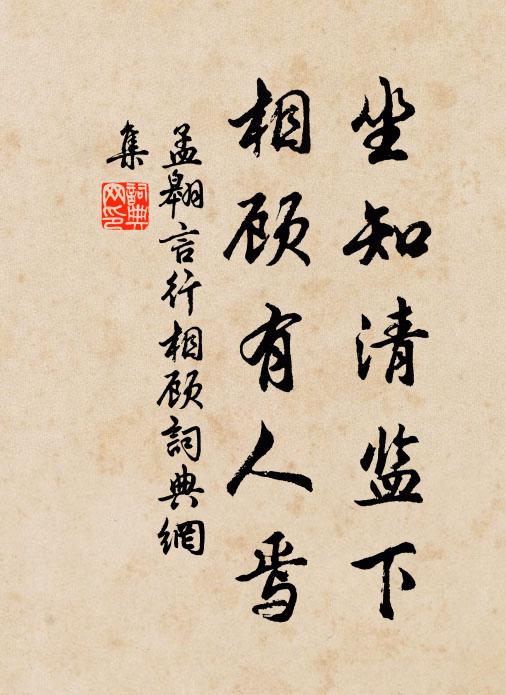 坐知清监下
相顾有人焉
孟翱言行相顾詞典網
集
詞典
网印